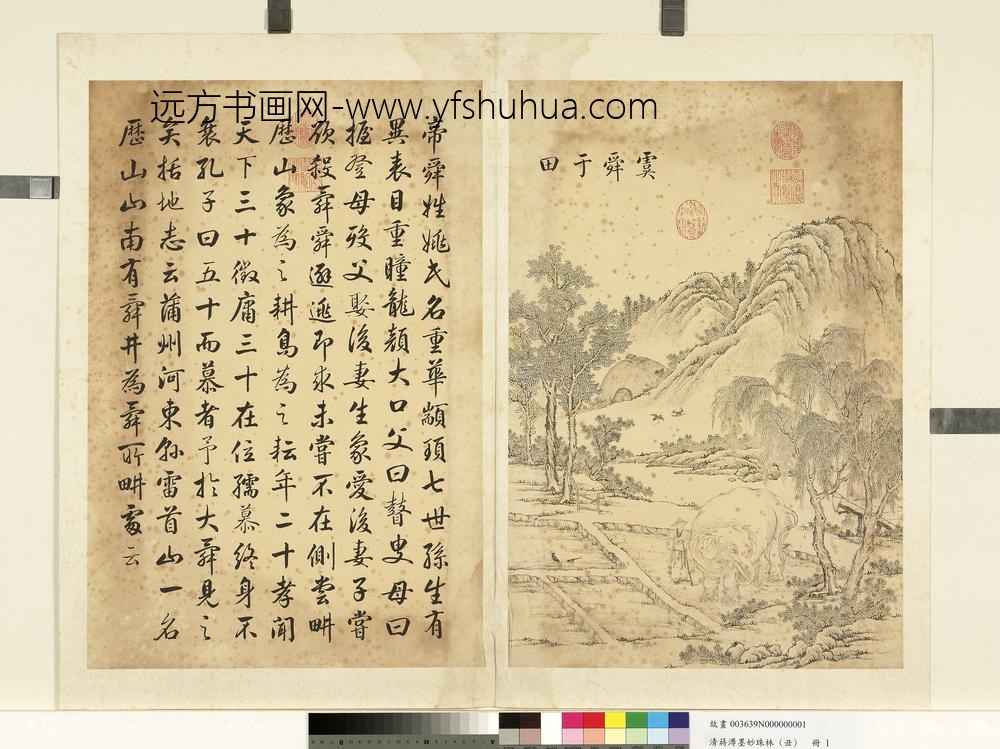 远方书画网-www.yfshuhua.com
虞舜于田
帝舜姓姚氏名重華顓頊七世孫生有
異表目重瞳龍顏大口父曰瞽叟母曰
握登母歿父娶後妻生象愛後妻子嘗
欲殺舜舜遜逃即求未嘗不在側嘗畊
歷山象為之耕鳥為之耘年二十孝聞
天下三十徵庸三十在位孺慕終身不
衰孔子曰五十而慕者予於大舜見之
矣括地志云蒲州河東縣雷首山一名
歷山山南有舜井為舜所畊處云
故畫 003639N000000001
清蔣溥墨妙珠林（丑） 冊 1